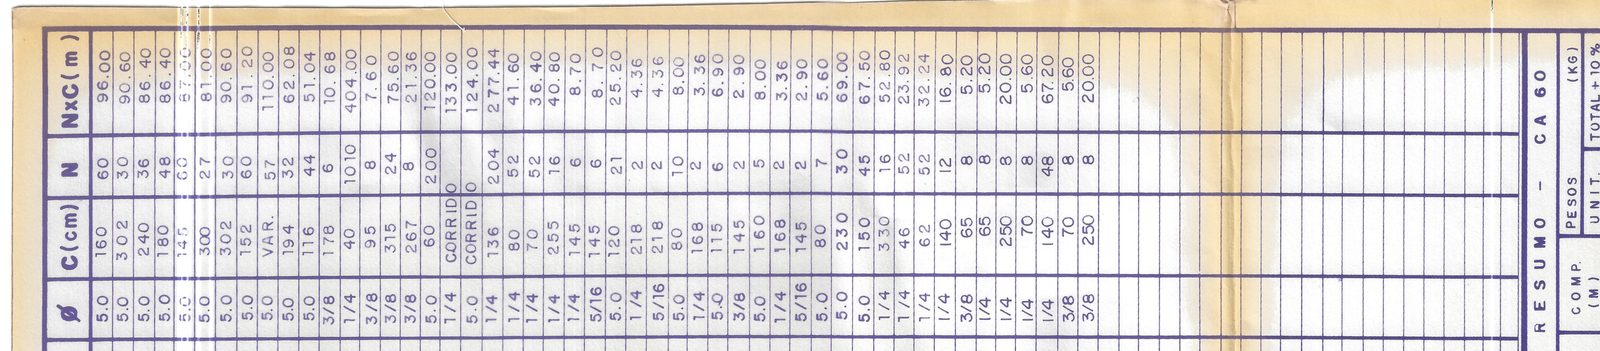 Ø C(cm) N NxC(m)
5.0 160 60 96.00
5.0 302 30 90.60
5.0 240 36 86.40
5.0 180 48 86.40
5.0 145 60 87.00
5.0 300 27 81.00
5.0 302 30 90.60
5.0 152 60 91.20
5.0 VAR. 57 110.00
5.0 194 32 62.08
5.0 116 44 51.04
3/8 178 6 10.68
1/4 40 1010 404.00
3/8 95 8 7.60
3/8 315 24 75.60
3/8 267 8 21.36
5.0 60 200 120.00
1/4 CORRIDO 133.00
5.0 CORRIDO 124.00
1/4 136 204 277.44
1/4 80 52 41.60
1/4 70 52 36.40
1/4 255 16 40.80
1/4 145 6 8.70
5/16 145 6 8.70
5.0 120 21 25.20
1/4 218 2 4.36
5/16 218 2 4.36
5.0 80 10 8.00
1/4 168 2 3.36
5.0 115 6 6.90
3/8 145 2 2.90
5.0 160 5 8.00
1/4 168 2 3.36
5/16 145 2 2.90
5.0 80 7 5.60
5.0 230 30 69.00
5.0 150 45 67.50
1/4 330 16 52.80
1/4 46 52 23.92
1/4 62 52 32.24
1/4 140 12 16.80
3/8 65 8 5.20
1/4 65 8 5.20
1/4 250 8 20.00
1/4 70 8 5.60
1/4 140 48 67.20
3/8 70 8 5.60
3/8 250 8 20.00
RESUMO - CA 60
COMP. PESOS (KG)
(M) UNIT. TOTAL+10%